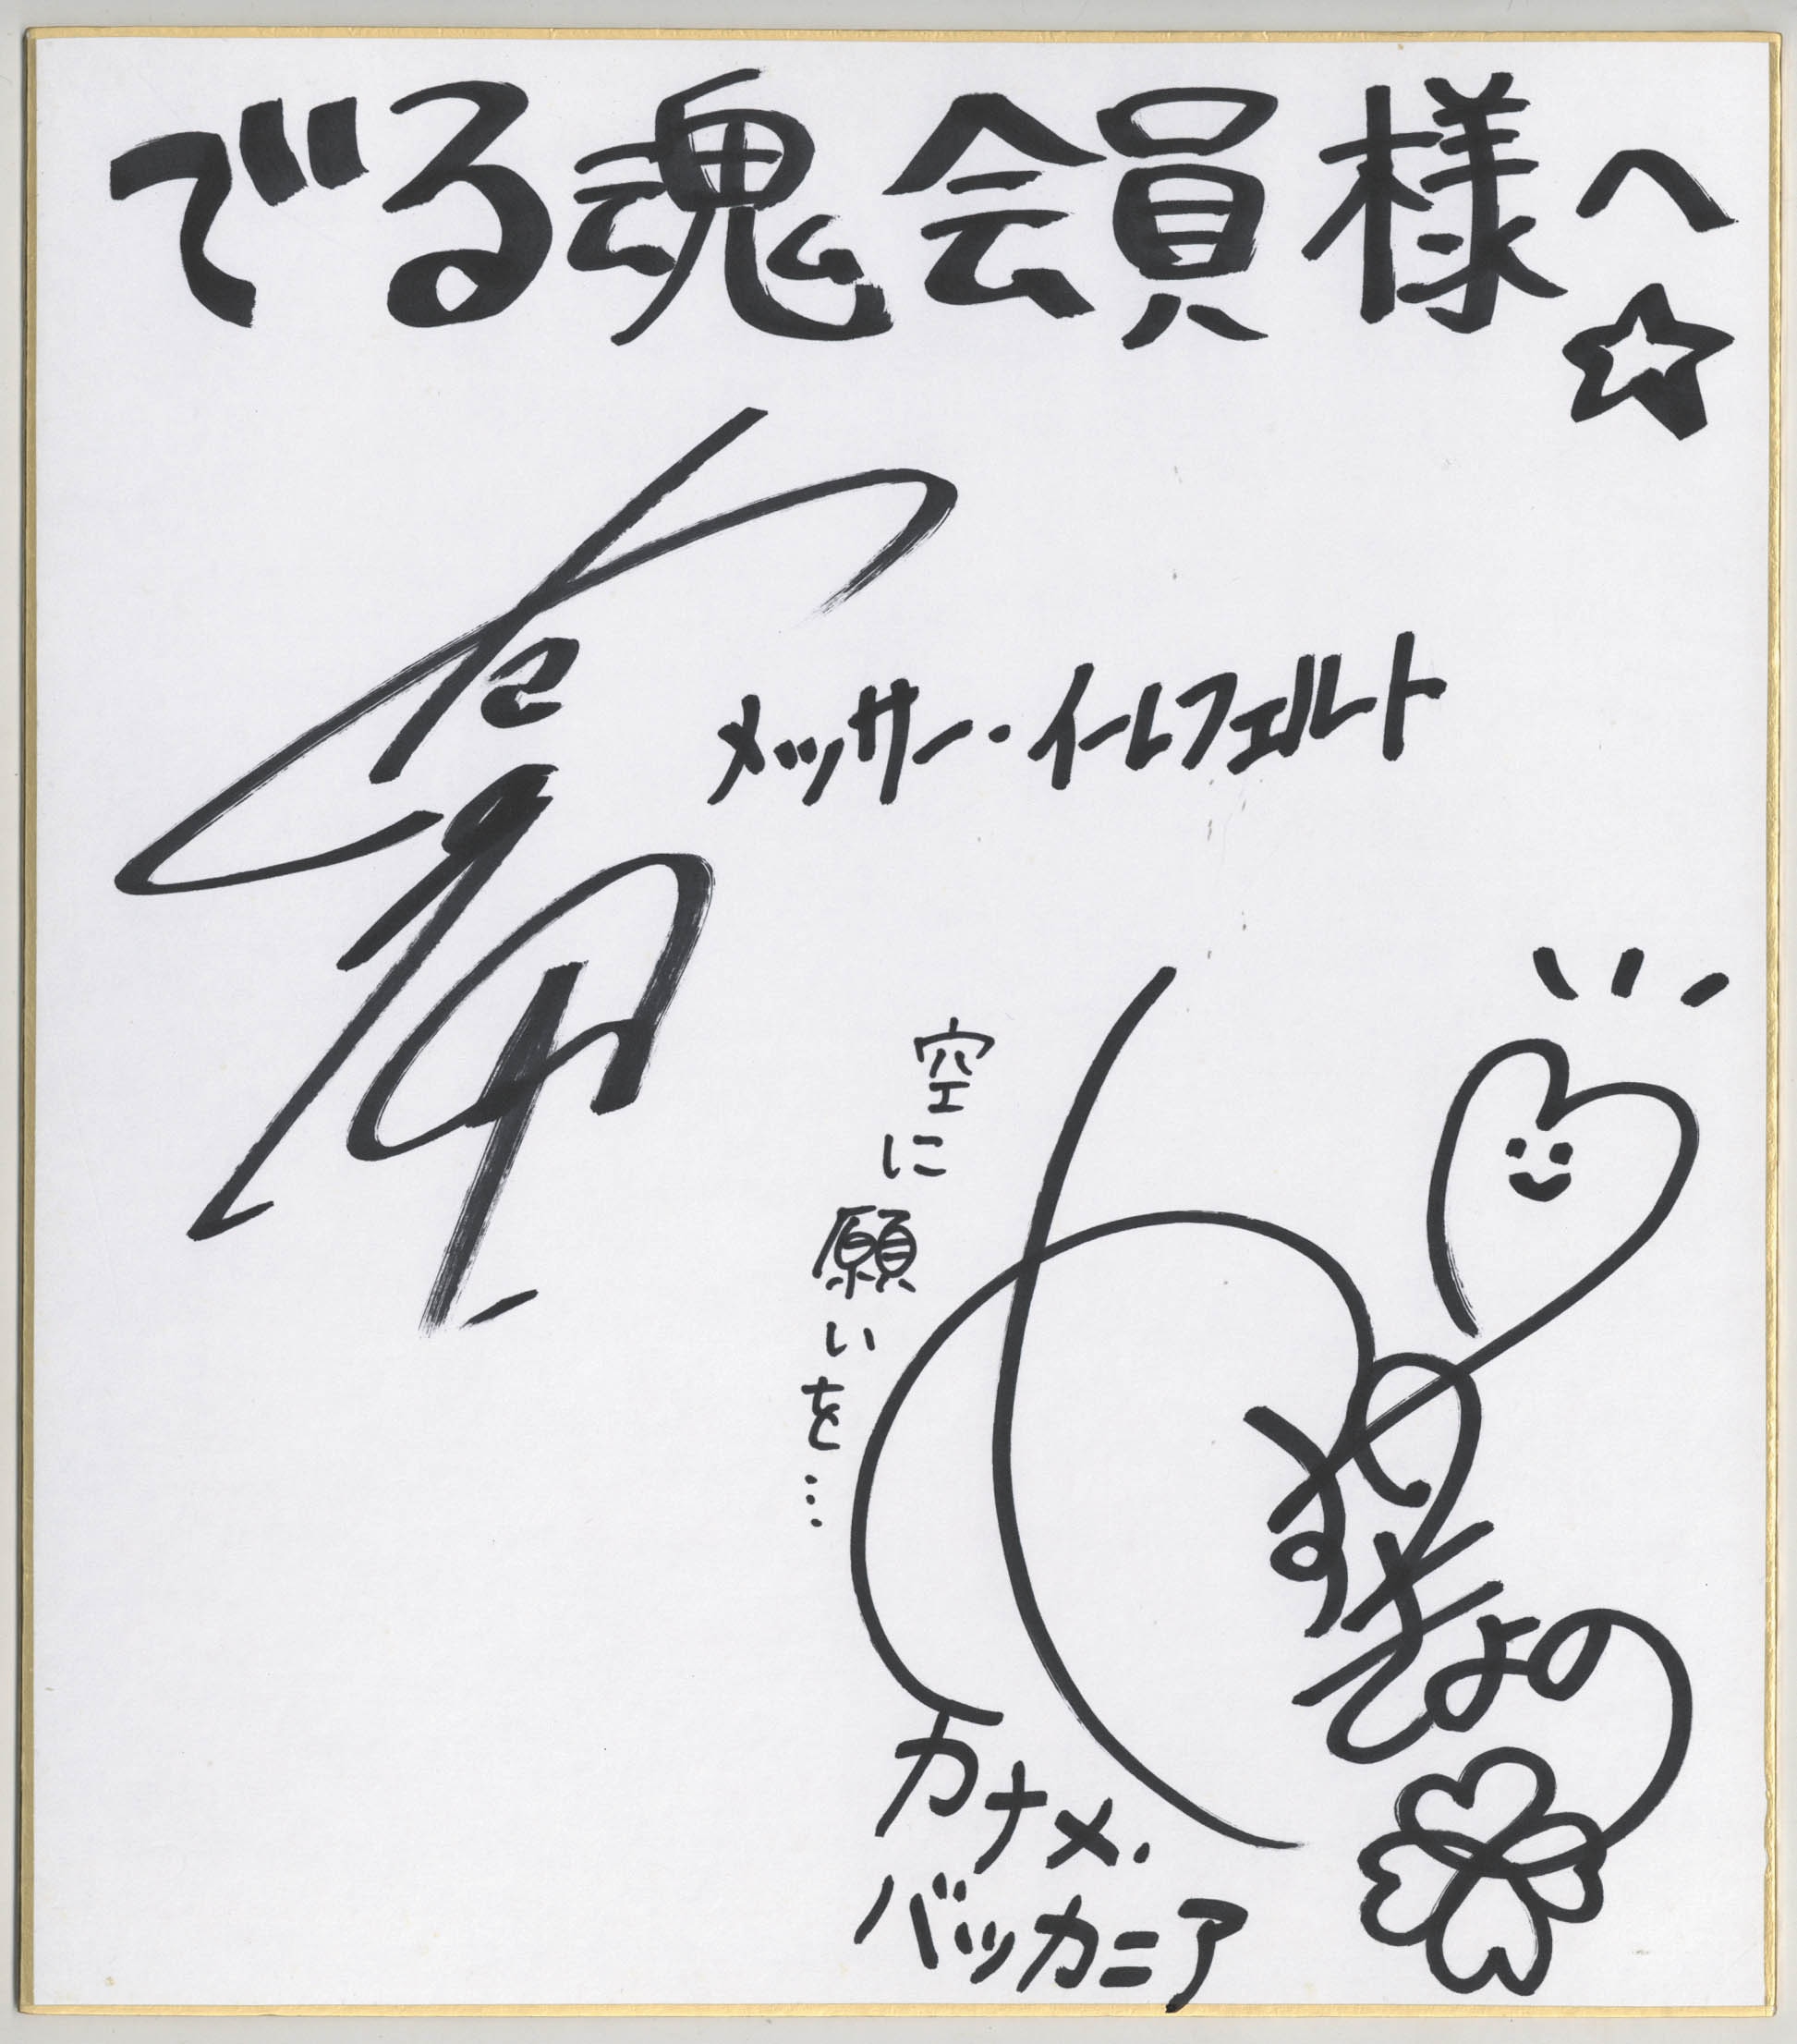 でる魂会員様へ☆
メッサー・イーレフェルト
空に願いを…
やすきよの
カナメ・
バッカニア